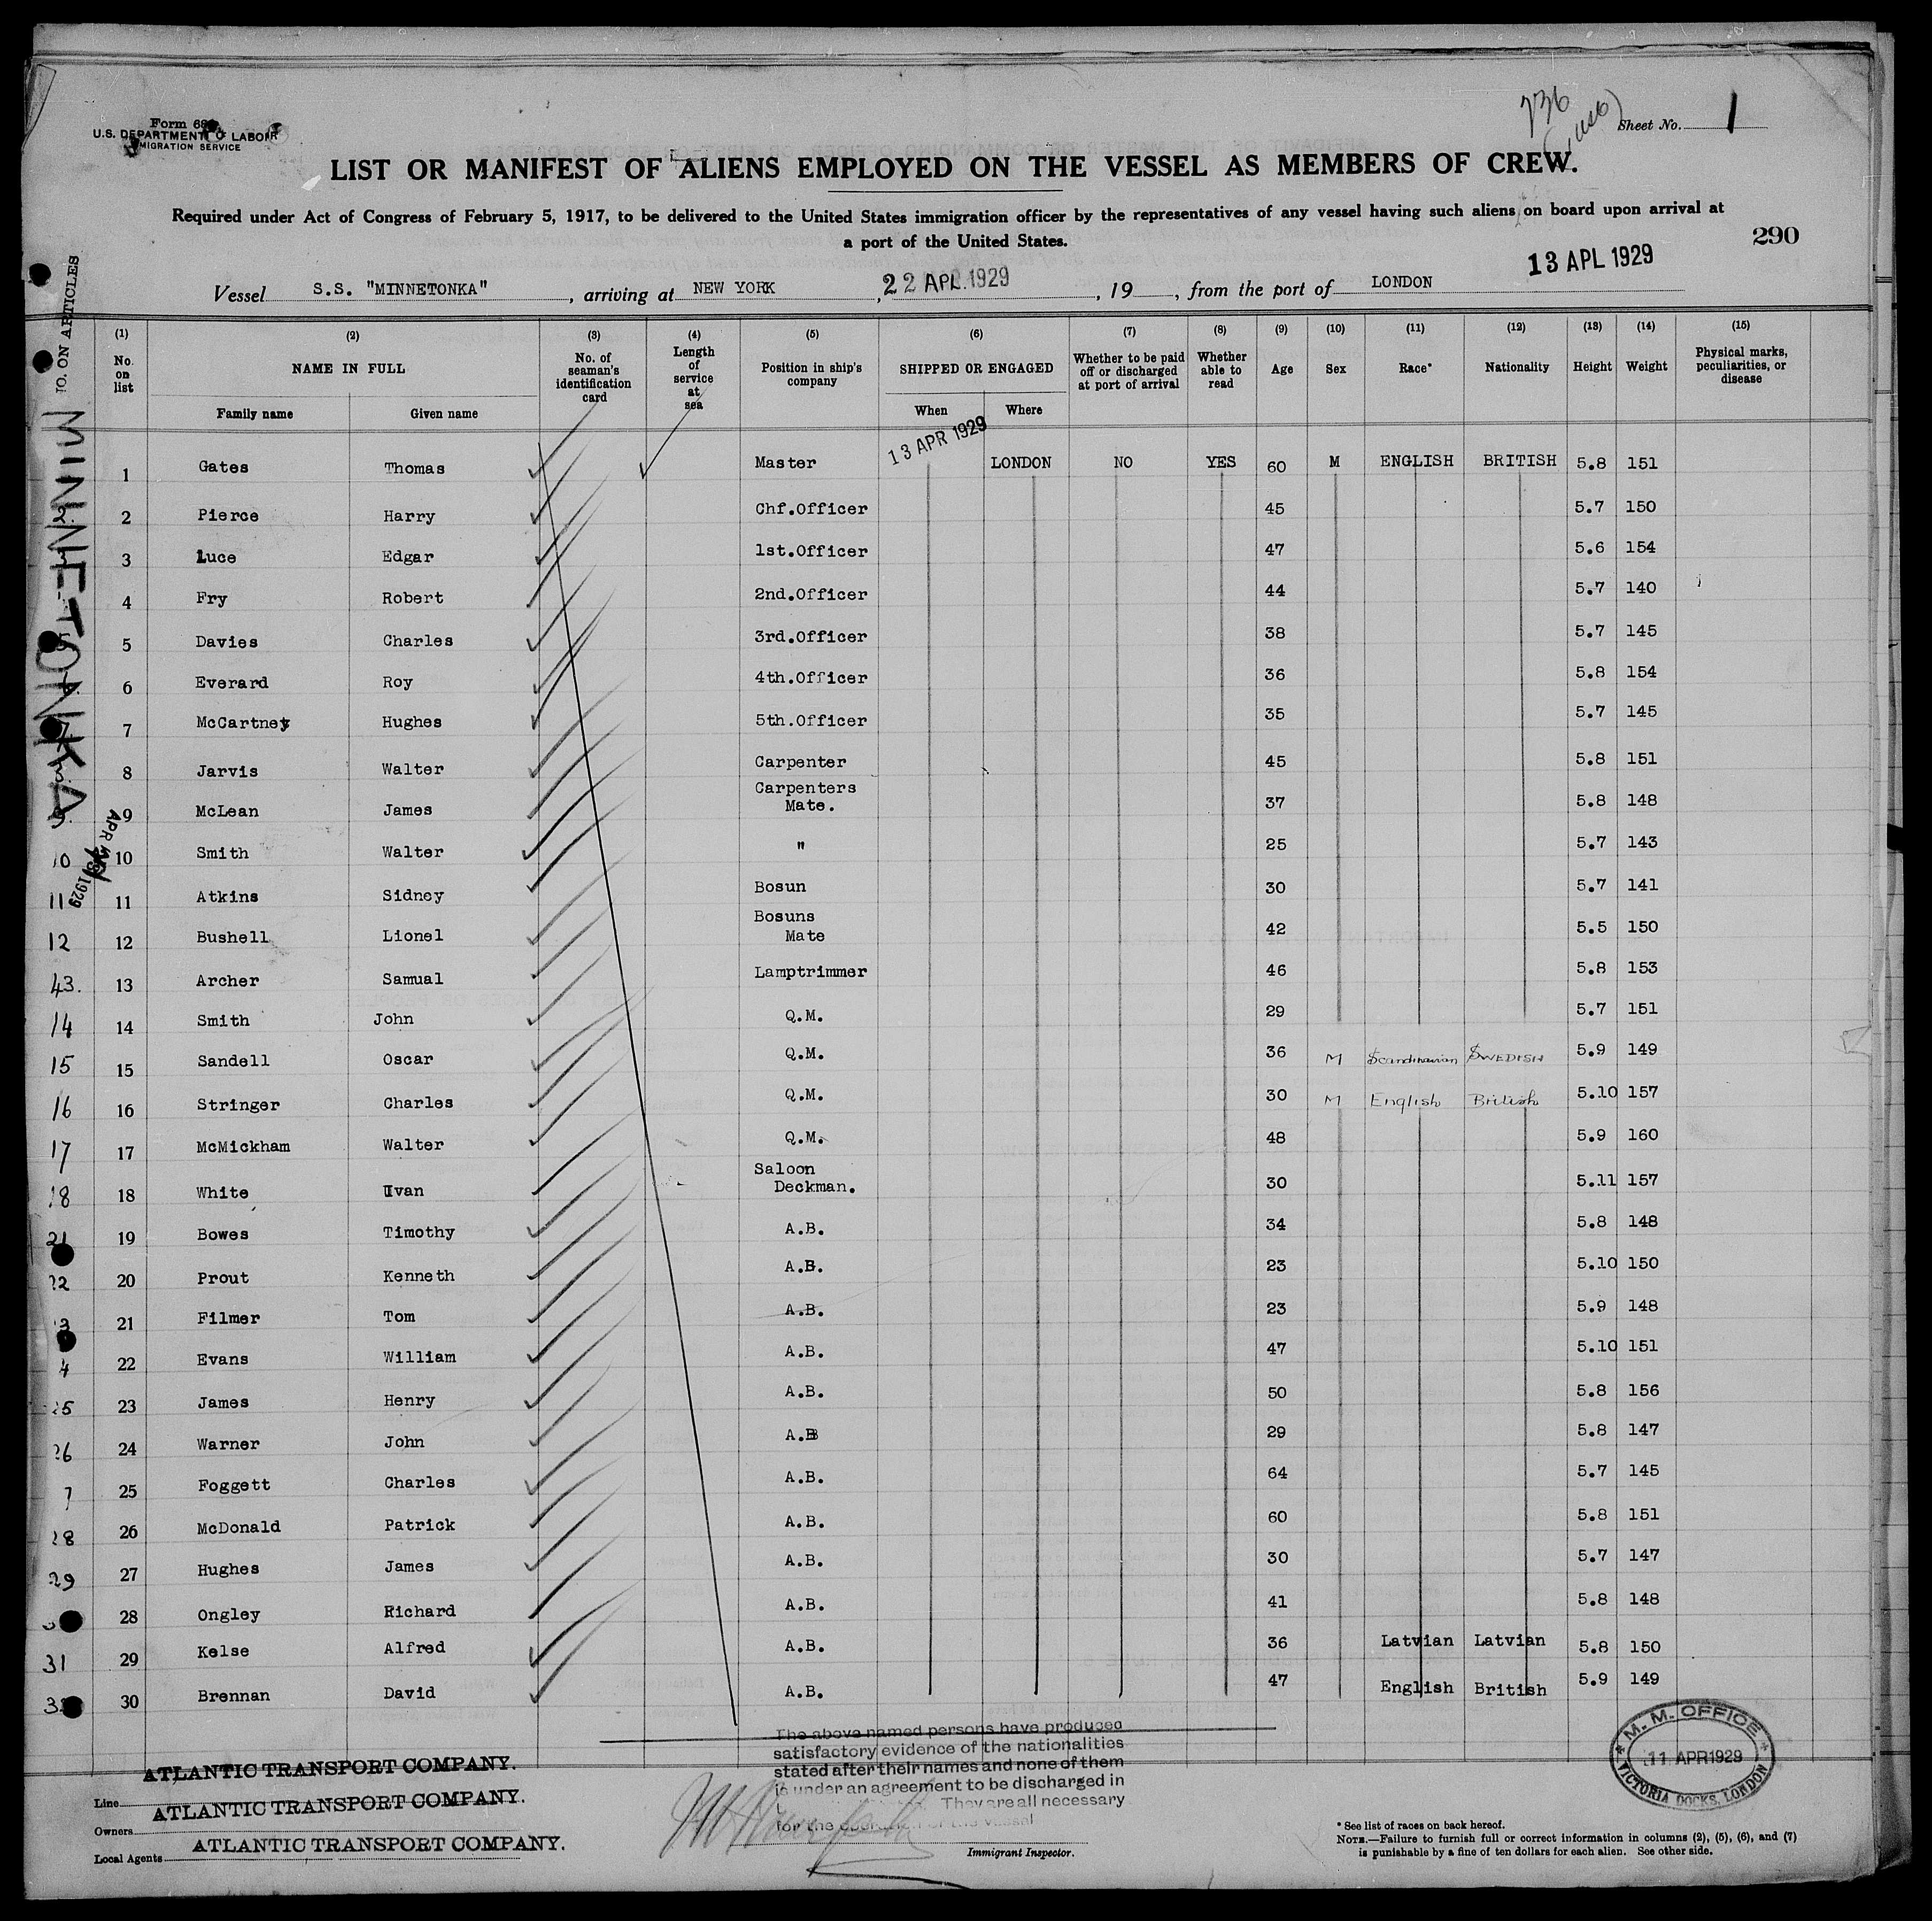 Form 680
U.S. DEPARTMENT OF LABOR
IMMIGRATION SERVICE
736
Sheet No. 1
LIST OR MANIFEST OF ALIENS EMPLOYED ON THE VESSEL AS MEMBERS OF CREW.
Required under Act of Congress of February 5, 1917, to be delivered to the United States immigration officer by the representatives of any vessel having such aliens on board upon arrival at
a port of the United States.
290
Vessel S.S. "MINNETONKA", arriving at NEW YORK, 22 APL.1929, 19, from the port of LONDON 13 APL 1929
NO. ON ARTICLES
MINNETONKA
(1) (2) (3) (4) (5) (6) (7) (8) (9) (10) (11) (12) (13) (14) (15)
No. on list NAME IN FULL No. of seaman's identification card Length of service at sea Position in ship's company SHIPPED OR ENGAGED Whether to be paid off or discharged at port of arrival Whether able to read Age Sex Race* Nationality Height Weight Physical marks, peculiarities, or disease
Family name Given name When Where
1 Gates Thomas Master 13 APR 1929 LONDON NO YES 60 M ENGLISH BRITISH 5.8 151
2 Pierce Harry Chf.Officer 45 5.7 150
3 Luce Edgar 1st.Officer 47 5.6 154
4 Fry Robert 2nd.Officer 44 5.7 140
5 Davies Charles 3rd.Officer 38 5.7 145
6 Everard Roy 4th.Officer 36 5.8 154
7 McCartney Hughes 5th.Officer 35 5.7 145
8 Jarvis Walter Carpenter 45 5.8 151
9 McLean James Carpenters Mate. 37 5.8 148
APR 1929
10 10 Smith Walter " 25 5.7 143
11 11 Atkins Sidney Bosun 30 5.7 141
12 12 Bushell Lionel Bosuns Mate 42 5.5 150
13. 13 Archer Samual Lamptrimmer 46 5.8 153
14 14 Smith John Q.M. 29 5.7 151
15 15 Sandell Oscar Q.M. 36 M Scandinavian SWEDISH 5.9 149
16 16 Stringer Charles Q.M. 30 M English British 5.10 157
17 17 McMickham Walter Q.M. 48 5.9 160
18 18 White Ivan Saloon Deckman. 30 5.11 157
21 19 Bowes Timothy A.B. 34 5.8 148
22 20 Prout Kenneth A.B. 23 5.10 150
3 21 Filmer Tom A.B. 23 5.9 148
4 22 Evans William A.B. 47 5.10 151
25 23 James Henry A.B. 50 5.8 156
26 24 Warner John A.B 29 5.8 147
7 25 Foggett Charles A.B. 64 5.7 145
28 26 McDonald Patrick A.B. 60 5.8 151
29 27 Hughes James A.B. 30 5.7 147
28 Ongley Richard A.B. 41 5.8 148
31 29 Kelse Alfred A.B. 36 Latvian Latvian 5.8 150
3 30 Brennan David A.B. 47 English British 5.9 149
The above named persons have produced
satisfactory evidence of the nationalities
stated after their names and none of them
is under an agreement to be discharged in
They are all necessary
for the operation of the vessal
Immigrant Inspector.
Line ATLANTIC TRANSPORT COMPANY.
Owners ATLANTIC TRANSPORT COMPANY.
Local Agents ATLANTIC TRANSPORT COMPANY.
M. M. OFFICE
11 APR 1929
VICTORIA DOCKS, LONDON
* See list of races on back hereof.
NOTE.—Failure to furnish full or correct information in columns (2), (5), (6), and (7)
is punishable by a fine of ten dollars for each alien. See other side.